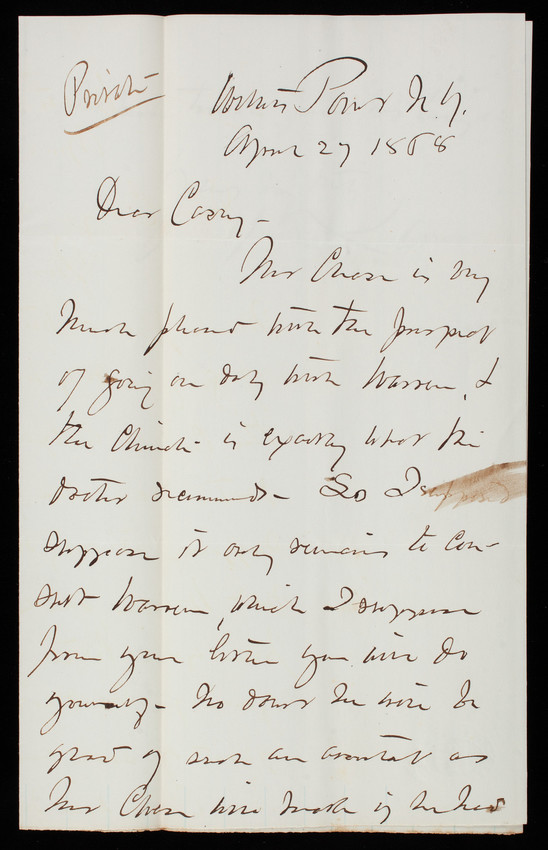 Private
Willets Point N.Y.
April 27 1868
Dear Casey—
Mr Chase is very
much pleased with the prospect
of going on duty with Warren, &
the Climate is exactly what his
doctor recommends— So I
suppose it only remains to con-
sult Warren, which I suppose
from your letter you will do
yourself— No doubt he will be
glad of such an assistant as
Mr Chase will make if he has